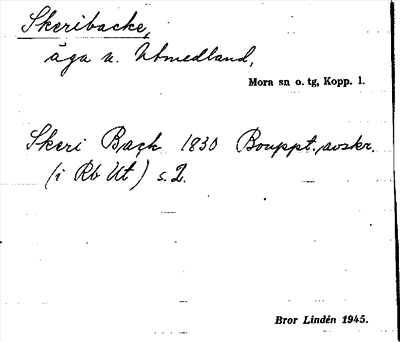 Skeribacke,
äga n. Utmedland,
Mora sn o. tg, Kopp. l.
Skeri Back 1830 Bouppt. avskr.
(i Rb Ut) s. 2.
Bror Lindén 1945.